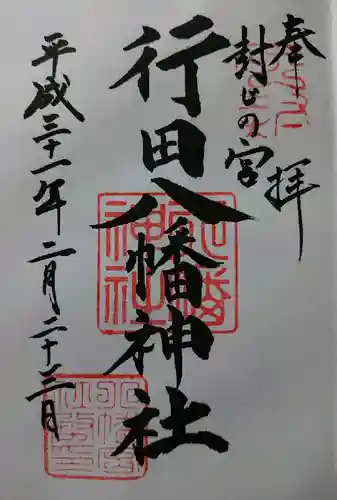 奉拝
封じの宮
行田八幡神社
平成三十一年二月二十三日
八幡神社